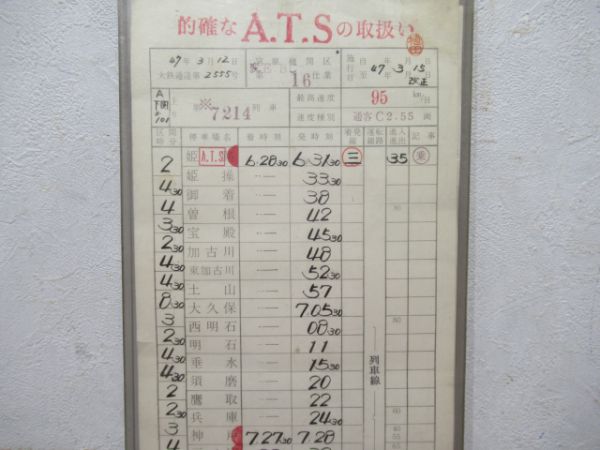 的確な A.T.S の取扱い
47年3月12日
大鉄運達第2555号
機関区
16仕業
施行日 47.3.15 改正
※7214列車
最高速度 95 km/h
速度種別 通客C2.55
区間時分 停車場名 着時刻 発時刻 着発線 運転線路 進入進出 記事
姫 A.T.S 6.28 30 6.31 30 三 35 乗
2 姫操 33 30
4 30 御着 38
4 曽根 42
3 30 宝殿 45 30
2 30 加古川 48
4 30 東加古川 52 30
4 30 土山 57
8 30 大久保 7.05 30
3 西明石 08 30
2 30 明石 11
4 30 垂水 15 30
4 30 須磨 20
2 鷹取 22
2 30 兵庫 24 30
3 神 7.27 30 7.28
4
列車線